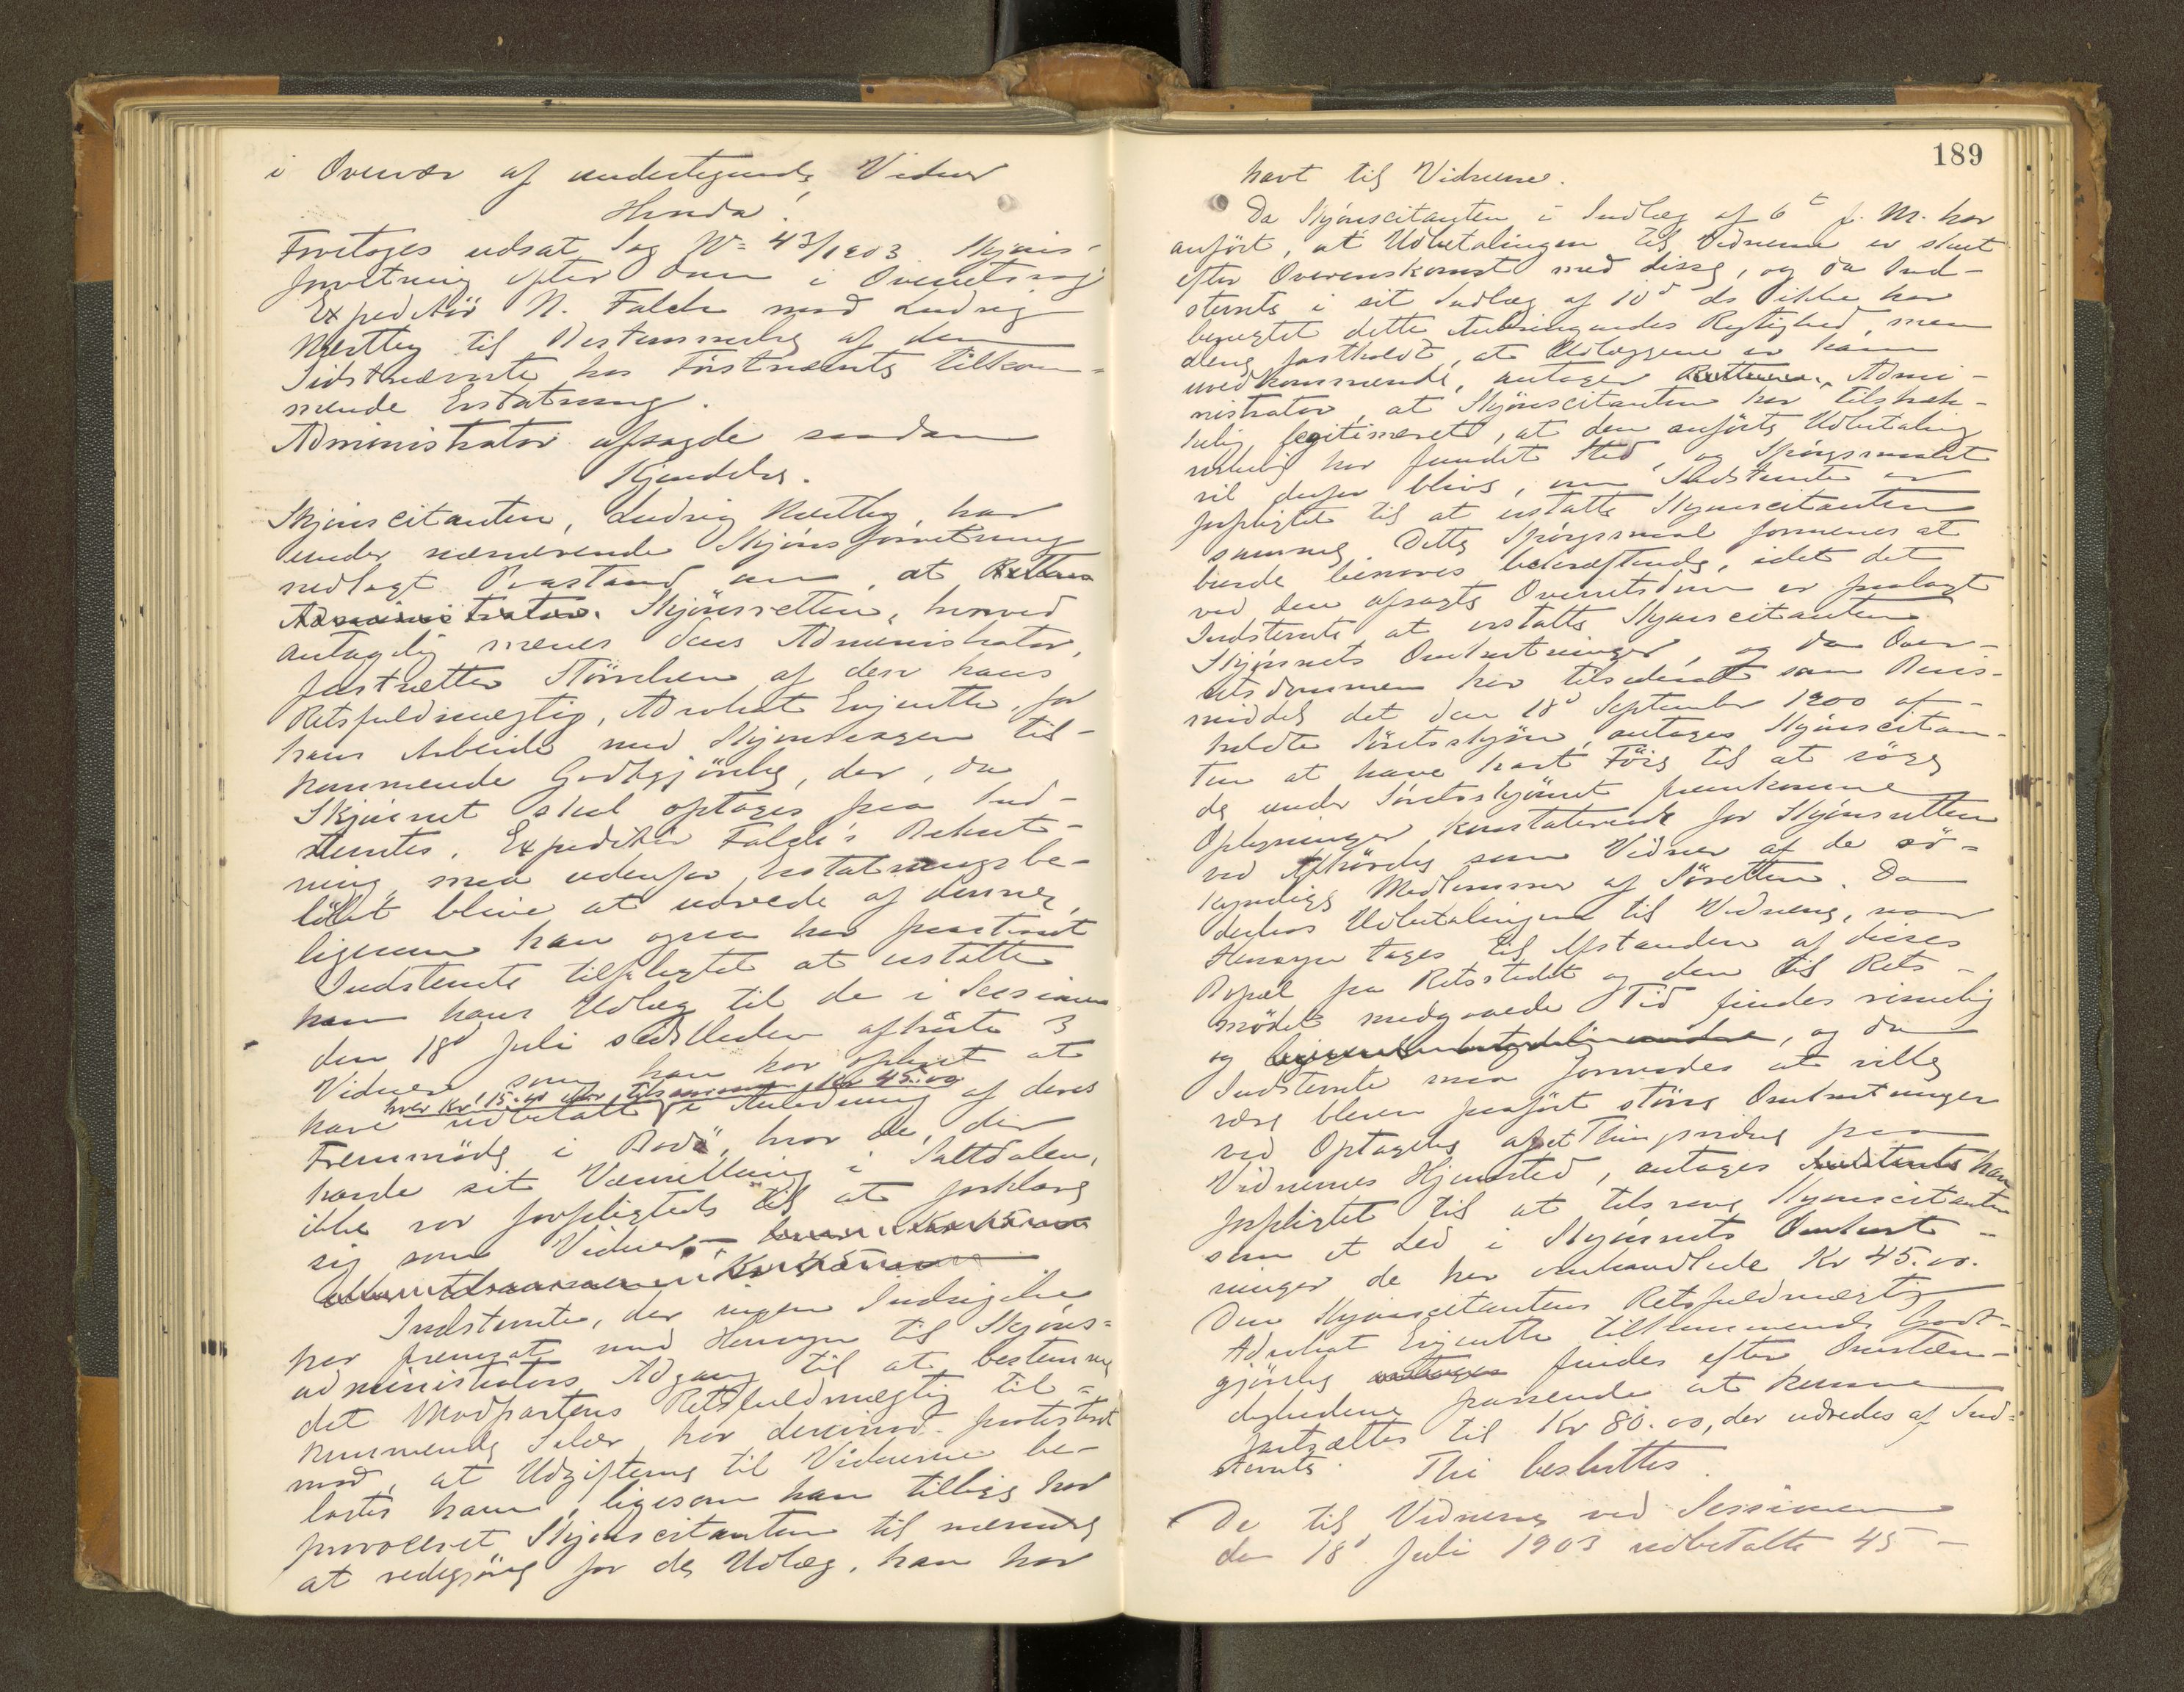 i Overvær af undertegnede Vidner
Hvorda:
Foretoges udsat Sag No 43/1903. Skjøns-
forretning efter Dom i Overretssag
Expeditør N. Falch mod Ludvig
Mertby til Bestemmelse af den
Sidstnævnte hos Førstnævnte tilkom-
mende Erstatning.
Administrator afsagde saadan
Kjendelse.
Skjønscitanten, Ludvig Mertby, har
under nærværende Skjønsforretning
nedlagt Paastand om, at Rettens
Administrator Skjønsretten, hvorved
antagelig menes dens Administrator,
fastsætter Størrelsen af den hans
Retsfuldmægtig, Advokat Enjuitte, for
hans Arbeide med Skjønssagen til-
kommende Godtgjørelse, der, da
Skjønnet skal optages paa Ind-
stevntes, Expeditør Falch's Bekost-
ning, maa udenfor Erstatningsbe-
løbet blive at udrede af denne,
ligesom han ogsaa har paastaaet
Indstevnte tilpligtet at erstatte
ham hans Udlæg til de i Sessionen
den 18d Juli sidstleden afhørte 3
Vidner som han har oplyst at
hver Kr. 15.00 eller tilsammen Kr 45.00
have udbetalt i Anledning af deres
Fremmøde i Bodø, hvor de, der
havde sit Værneting i Saltdalen,
ikke var forpligtede til at forklare
sig som Vidner.
Indstevnte, der ingen Indsigelse
har fremsat med Hensyn til Skjøns-
administrators Adgang til at bestemme
det Modpartens Retsfuldmægtig til-
kommende Salær, har derimod protesteret
mod, at Udgifterne til Vidnerne be-
lastes ham, ligesom han tillige har
provoceret Skjønscitanten til nærmere
at redegjøre for de Udlæg, han har
189
havt til Vidnerne.
Da Skjønscitanten i Indlæg af 6te f. M. har
anført, at Udbetalingen til Vidnerne er skeet
efter Overenskomst med disse, og da Ind-
stevnte i sit Indlæg af 10d ds ikke har
benegtet dette Anbringendes Rigtighed, men
alene fastholdt, at Udlæggene er ham
uvedkommende, antager Retten Admi-
nistrator, at Skjønscitanten har tilstræk-
kelig legitimeret, at den anførte Udbetaling
virkelig har fundet Sted, og Spørgsmaalet
vil derfor blive, om Indstevnte er
forpligtet til at erstatte Skjønscitanten
samme. Dette Spørgsmaal formenes at
burde besvares bekræftende, idet det
ved den afsagte Overretsdom er paalagt
Indstevnte at erstatte Skjønscitanten
Skjønnets Omkostninger, og da Over-
retsdommen har tilsidesat som Bevis-
middel det den 18d September 1900 af-
holdte Søretsskjøn, antages Skjønscitan-
ten at have havt Føie til at søge
de under Søretsskjønnet fremkomne
Oplysninger konstaterede for Skjønsretten
ved Afhørelse som Vidner af de sø-
kyndige Medlemmer af Søretten. Da
derhos Udbetalingen til Vidnerne, naar
Hensyn tages til Afstanden af disses
Bopæl fra Retsstedet og den til Rets-
mødet medgaaede Tid findes rimelig
og, og da
Indstevnte maa formodes at ville
være bleven paaført større Omkostninger
ved Optagelse af et Thingsvidne paa
Vidnernes Hjemsted, antages Indstevnte han
forpligtet til at tilsvare Skjønscitanten
som et Led i Skjønnets Omkost-
ninger de her omhandlede Kr 45.00.
Den Skjønscitantens Retsfuldmægtig
Advokat Enjuitte tilkommende Godt-
gjørelse antages findes efter Omstæn-
dighederne passende at kunne
fastsættes til Kr 80.00, der udredes af Ind-
stevnte. Thi besluttes.
De til Vidnerne ved Sessionen
den 18d Juli 1903 udbetalte 45 -